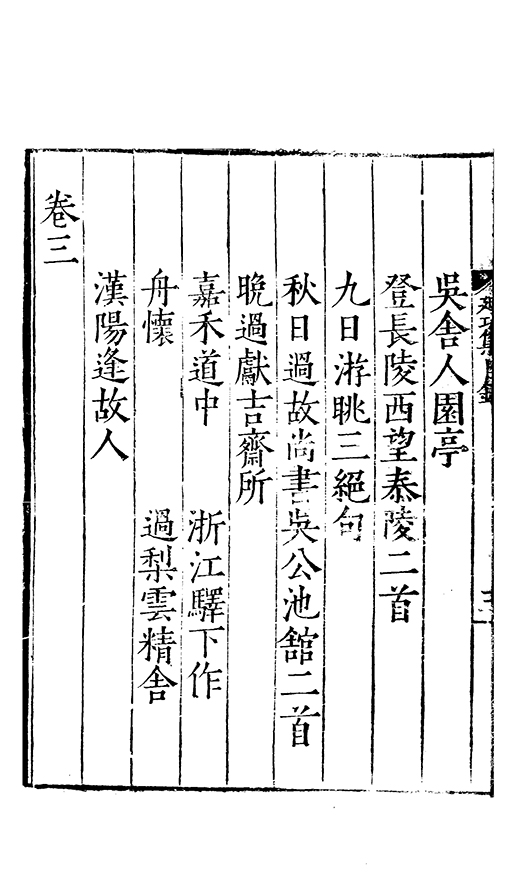 吳舍人園亭
登長陵西望泰陵二首
九日游眺三絕句
秋日過故尚書吳公池舘二首
晚過獻吉齋所
嘉禾道中　浙江驛下作
舟懷　過梨雲精舍
漢陽逢故人
卷三